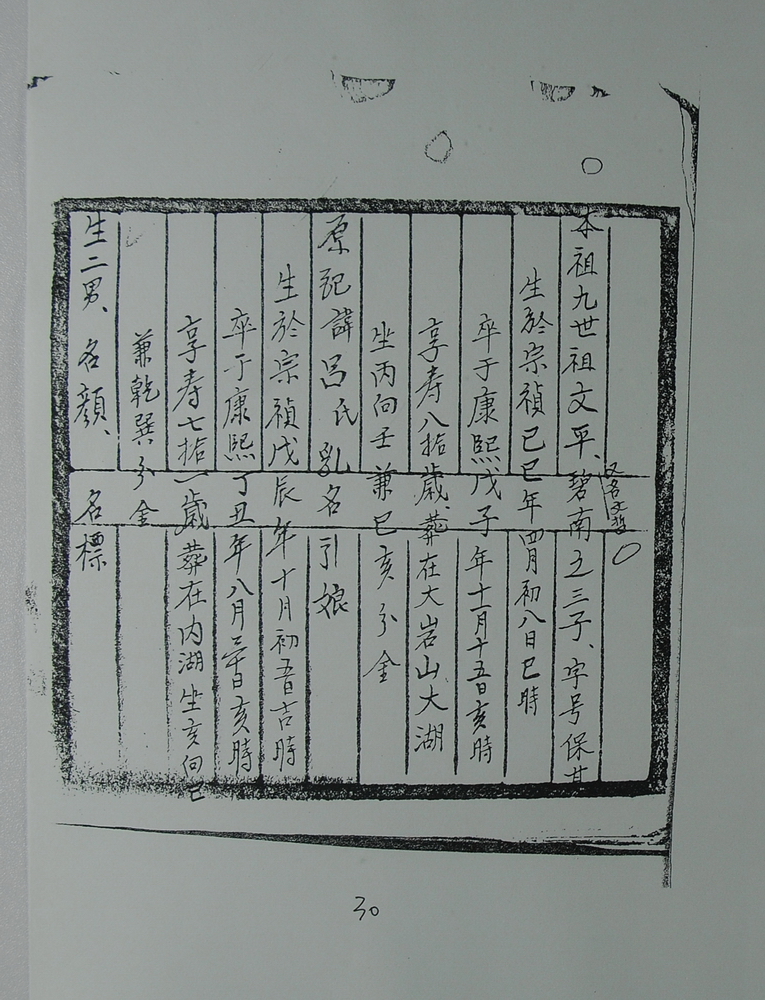 本祖九世祖文平、碧南之三子、字号保其
又名文哲
生於宗禎己巳年四月初八日巳時
卒于康熙戊子年十一月十五日亥時
享寿八拾歲、葬在大岩山大湖
坐丙向壬兼巳亥分金
原記諱吕氏乳名引娘
生於宗禎戊辰年十月初五日吉時
卒于康熙丁丑年八月三十日亥時
享寿七拾一歲葬在内湖坐亥向巳
兼乾巽分金
生二男、名顔、名標
30